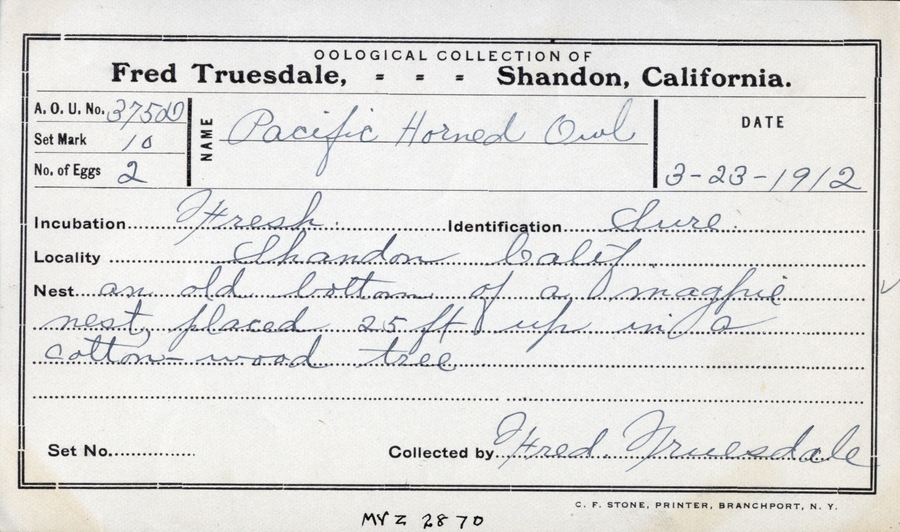 OOLOGICAL COLLECTION OF
Fred Truesdale, = = = Shandon, California.
A. O. U. No. 375D
Set Mark 10
No. of Eggs 2
NAME Pacific Horned Owl
DATE
3-23-1912
Incubation Fresh. Identification Sure.
Locality Shandon Calif.
Nest an old bottom of a magpie
nest, placed 25 ft up in a
cotton-wood tree
Set No. Collected by Fred. Truesdale
C. F. STONE, PRINTER, BRANCHPORT, N. Y.
MVZ 2870